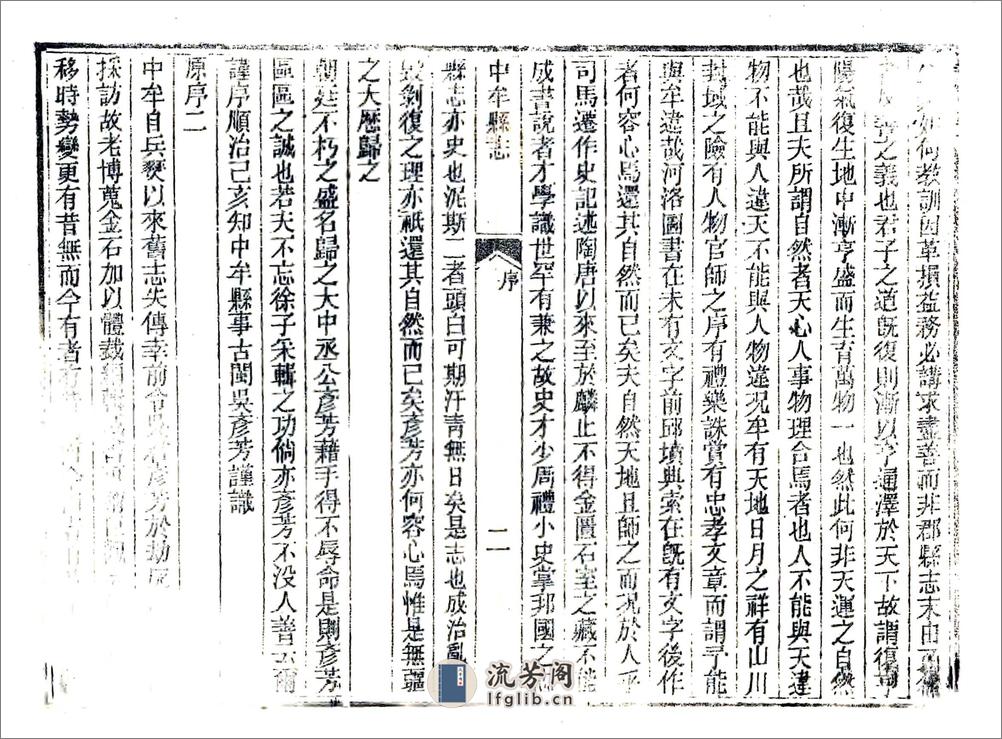 如何教訓因革損益務必講求盡善而非郡縣志末由
之義也君子之道既復則漸以亨通澤於天下故謂復亨
陽氣復生地中漸亨盛而生育萬物一也然此何非天運之自然
也哉且夫所謂自然者天心人事物理合焉者也人不能與天違
物不能與人違天不能與人物違况牟有天地日月之祥有山川
封域之險有人物官師之序有禮樂誅賞有忠孝文章而謂予能
與牟違哉河洛圖書在未有文字前邱墳典索在既有文字後作
者何容心焉還其自然而已矣夫自然天地且師之而况於人乎
司馬遷作史記述陶唐以來至於麟止不得金匱石室之藏不能
成書說者才學識世罕有兼之故史才少周禮小史掌邦國之
中牟縣志 序 二
縣志亦史也泥斯二者頭白可期汗青無日矣是志也成治亂
剝復之理亦祇還其自然而已矣彥芳亦何容心焉惟是無疆
之大歷歸之
朝廷不朽之盛名歸之大中丞公彥芳藉手得不辱命是則彥芳
區區之誠也若夫不忘徐子采輯之功倘亦彥芳不没人善云爾
謹序順治己亥知中牟縣事古閩吳彥芳謹識
原序二
中牟自兵燹以來舊志失傳幸前令彥芳於劫
採訪故老博蒐金石加以體裁
移時勢變更有昔無而今有者
流芳阁
lfglib.com